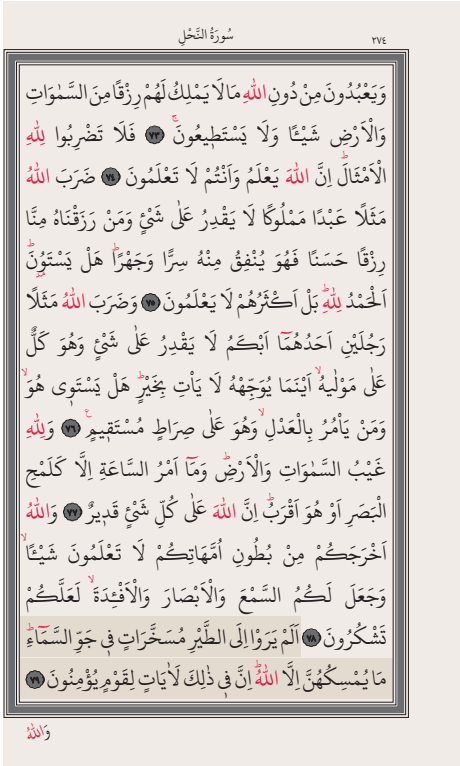 سُورَةُ النَّحْلِ
٢٧٤
وَيَعْبُدُونَ مِنْ دُونِ اللّٰهِ مَا لَا يَمْلِكُ لَهُمْ رِزْقًا مِنَ السَّمٰوَاتِ
وَالْاَرْضِ شَيْـًٔا وَلَا يَسْتَط۪يعُونَۚ ﴿٧٣﴾ فَلَا تَضْرِبُوا لِلّٰهِ
الْاَمْثَالَۜ اِنَّ اللّٰهَ يَعْلَمُ وَاَنْتُمْ لَا تَعْلَمُونَ ﴿٧٤﴾ ضَرَبَ اللّٰهُ
مَثَلًا عَبْدًا مَمْلُوكًا لَا يَقْدِرُ عَلٰى شَيْءٍ وَمَنْ رَزَقْنَاهُ مِنَّا
رِزْقًا حَسَنًا فَهُوَ يُنْفِقُ مِنْهُ سِرًّا وَجَهْرًاۜ هَلْ يَسْتَوُ۫نَۜ
اَلْحَمْدُ لِلّٰهِۜ بَلْ اَكْثَرُهُمْ لَا يَعْلَمُونَ ﴿٧٥﴾ وَضَرَبَ اللّٰهُ مَثَلًا
رَجُلَيْنِ اَحَدُهُمَٓا اَبْكَمُ لَا يَقْدِرُ عَلٰى شَيْءٍ وَهُوَ كَلٌّ
عَلٰى مَوْلٰيهُۙ اَيْنَمَا يُوَجِّهْهُ لَا يَأْتِ بِخَيْرٍۜ هَلْ يَسْتَو۪ي هُوَۙ
وَمَنْ يَأْمُرُ بِالْعَدْلِۙ وَهُوَ عَلٰى صِرَاطٍ مُسْتَق۪يمٍ۟ ﴿٧٦﴾ وَلِلّٰهِ
غَيْبُ السَّمٰوَاتِ وَالْاَرْضِۜ وَمَٓا اَمْرُ السَّاعَةِ اِلَّا كَلَمْحِ
الْبَصَرِ اَوْ هُوَ اَقْرَبُۜ اِنَّ اللّٰهَ عَلٰى كُلِّ شَيْءٍ قَد۪يرٌ ﴿٧٧﴾ وَاللّٰهُ
اَخْرَجَكُمْ مِنْ بُطُونِ اُمَّهَاتِكُمْ لَا تَعْلَمُونَ شَيْـًٔاۙ
وَجَعَلَ لَكُمُ السَّمْعَ وَالْاَبْصَارَ وَالْاَفْـِٔدَةَۙ لَعَلَّكُمْ
تَشْكُرُونَ ﴿٧٨﴾ اَلَمْ يَرَوْا اِلَى الطَّيْرِ مُسَخَّرَاتٍ ف۪ي جَوِّ السَّمَٓاءِۜ
مَا يُمْسِكُهُنَّ اِلَّا اللّٰهُۜ اِنَّ ف۪ي ذٰلِكَ لَاٰيَاتٍ لِقَوْمٍ يُؤْمِنُونَ ﴿٧٩﴾
وَاللّٰهُ